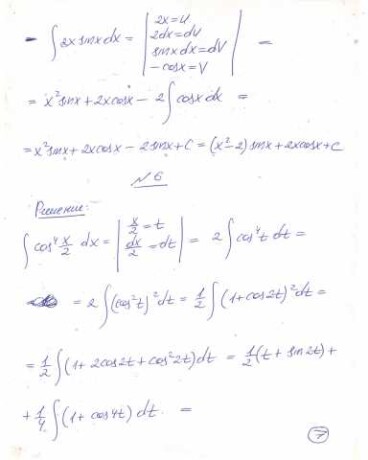 - ∫ 2x sinx dx = | 2x = U
2dx = dU
sinxdx = dV
-cosx = V | =
= x² sinx + 2x cosx - 2 ∫ cosx dx =
= x² sinx + 2x cosx - 2 sinx + C = (x² - 2) sinx + 2x cosx + C
№ 6
Решение:
∫ cos⁴ x/2 dx = | x/2 = t
dx/2 = dt | = 2 ∫ cos⁴t dt =
= 2 ∫ (cos²t)² dt = 1/2 ∫ (1 + cos2t)² dt =
= 1/2 ∫ (1 + 2cos2t + cos²2t) dt = 1/2 (t + sin2t) +
+ 1/4 ∫ (1 + cos4t) dt. =
7